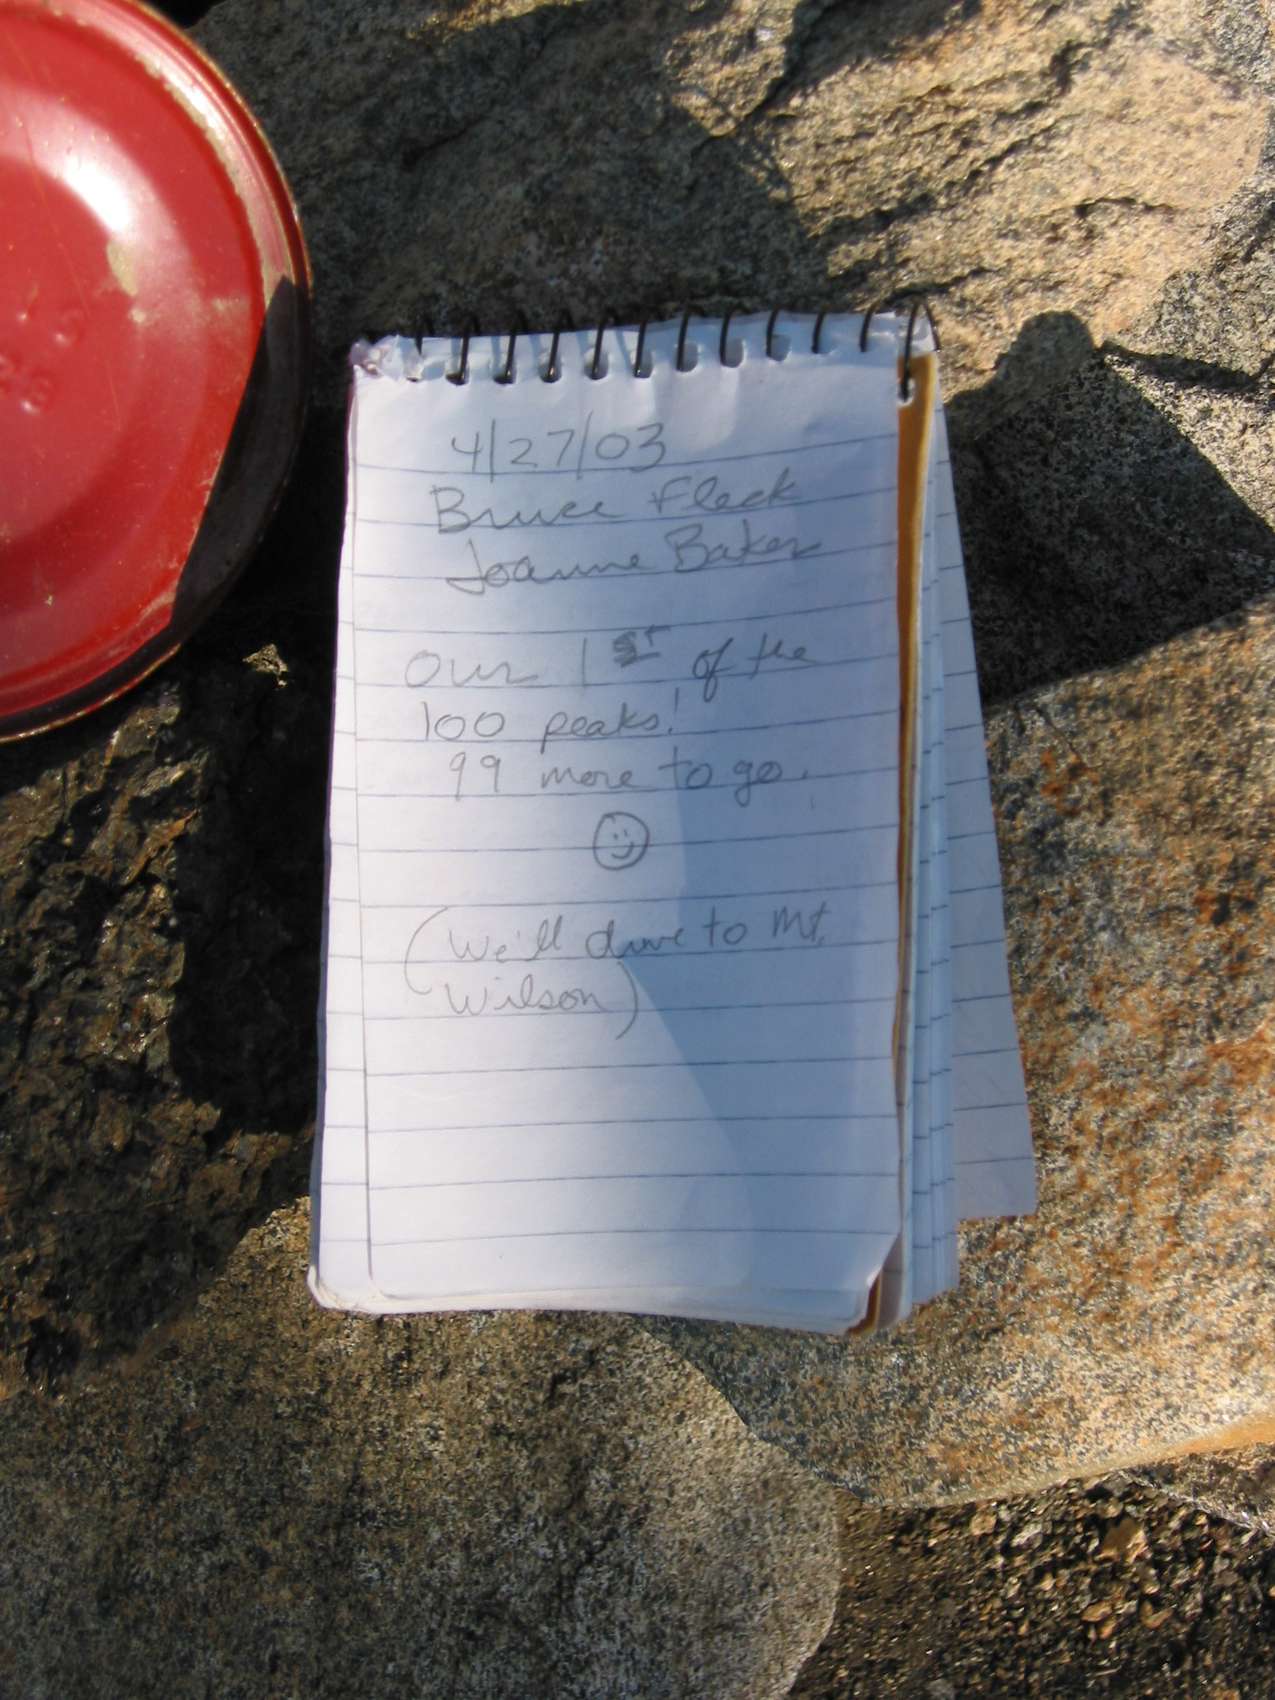 4/27/03
Bruce Fleck
Joanne Baker
Our 1st of the
100 peaks!
99 more to go.
(We'll drive to Mt.
Wilson)